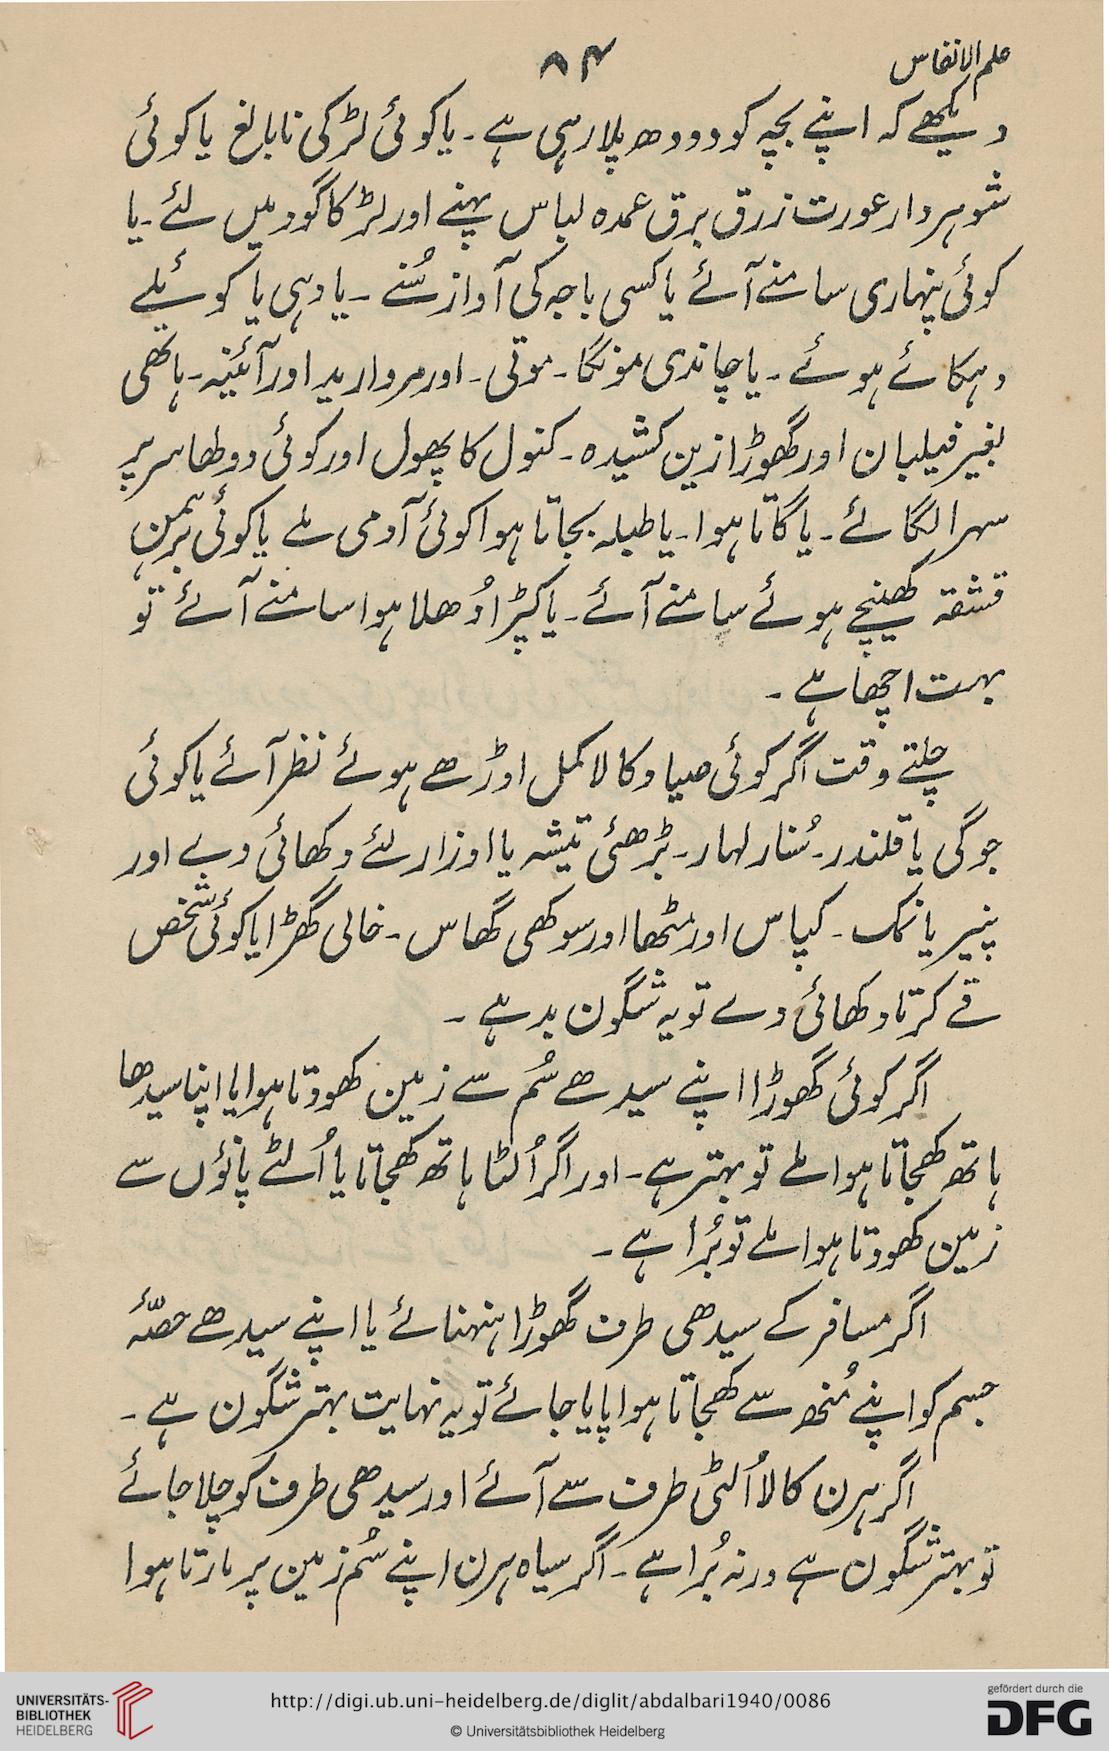 علم الانفاس
۸۴
دیکھے کہ اپنے بچہ کو دودھ پلا رہی ہے ۔ یا کوئی لڑکی نابالغ یا کوئی
شوہردار عورت زرق برق عمدہ لباس پہنے اور لڑکا گود میں لئے ۔ یا
کوئی پنہاری سامنے آئے یا کسی باجہ کی آواز سُنے ۔ یا دہی یا کوئلے
دہکائے ہوئے ۔ یا چاندی مونگا ۔ موتی ۔ اور مروارید اور آئینہ ۔ ہاتھی
بغیر فیلبان اور گھوڑا زین کشیدہ ۔ کنول کا پھول اور کوئی دولھا سر پر
سہرا لگائے ۔ یا گاتا ہوا ۔ یا طبلہ بجاتا ہوا کوئی آدمی ملے یا کوئی برہمن
قشقہ کھینچے ہوئے سامنے آئے ۔ یا کپڑا دُھلا ہوا سامنے آئے تو
بہت اچھا ہے ۔
چلتے وقت اگر کوئی صیاد کالا کمل اوڑھے ہوئے نظر آئے یا کوئی
جوگی یا قلندر ۔ سُنار لہار ۔ بڑھئی تیشہ یا اوزار لئے دکھائی دے اور
پنیر یا نمک ۔ کپاس اور مٹھا اور سوکھی گھاس ۔ خالی گھڑا یا کوئی شخص
قے کرتا دکھائی دے تو یہ شگون بد ہے ۔
اگر کوئی گھوڑا اپنے سیدھے سُم سے زمین کھودتا ہوا یا اپنا سیدھا
ہاتھ کھجاتا ہوا ملے تو بہتر ہے ۔ اور اگر اُلٹا ہاتھ کھجاتا یا اُلٹے پاؤں سے
زمین کھودتا ہوا ملے تو بُرا ہے ۔
اگر مسافر کے سیدھی طرف گھوڑا ہنہنائے یا اپنے سیدھے حصّہٴ
جسم کو اپنے مُنھ سے کھجاتا ہوا پایا جائے تو یہ نہایت بہتر شگون ہے ۔
اگر ہرن کالا اُلٹی طرف سے آئے اور سیدھی طرف کو چلا جائے
تو بہتر شگون ہے ورنہ بُرا ہے ۔ اگر سیاہ ہرن اپنے سُم زمین پر مارتا ہوا
UNIVERSITÄTS-
BIBLIOTHEK
HEIDELBERG
http://digi.ub.uni-heidelberg.de/diglit/abdalbari1940/0086
© Universitätsbibliothek Heidelberg
gefördert durch die
DFG